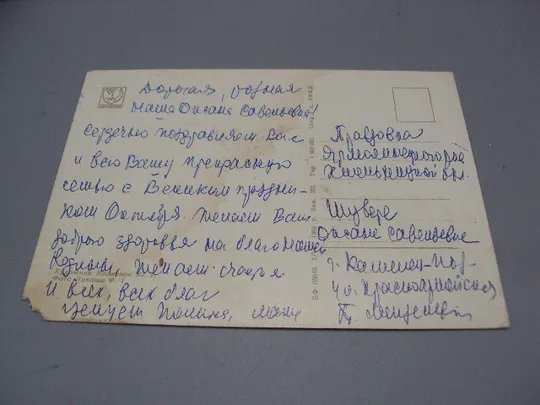 Дорогая, родная
наша Оксана Савельевна!
Сердечно поздравляем Вас
и всю Вашу прекрасную
семью с Великим праздни-
ком Октября. Желаем Вам
доброго здоровья на благо нашей
Родины, желаем счастья
и всех, всех благ
Целуем Полина,
Правдовка
Ярмолинецкого р-на
Хмельницкой обл.
Шувере
Оксане Савельевне
г. Каменец-Под
ул. Красноармейская